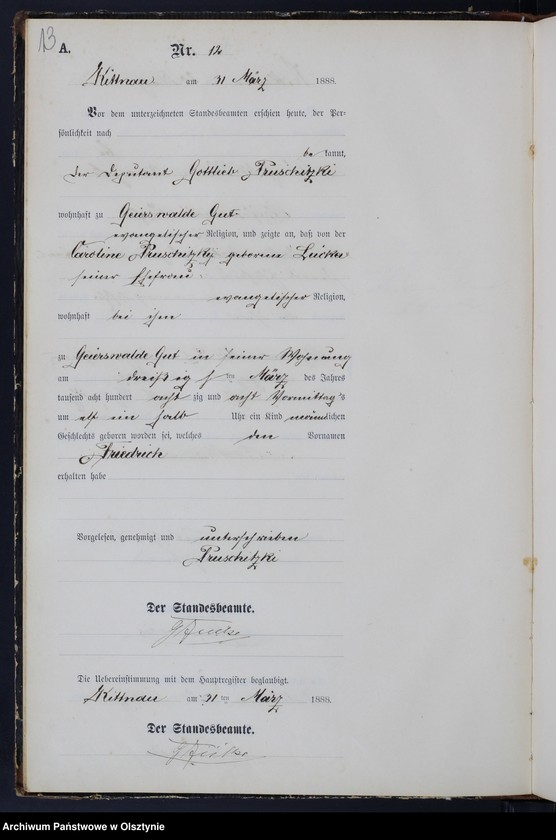 13
A.
Nr. 12
Kittnau am 31 März 1888.
Vor dem unterzeichneten Standesbeamten erschien heute, der Per-
sönlichkeit nach
be kannt,
der Deputant Gottlieb Pruschitzki
wohnhaft zu Geierswalde Gut
evangelischer Religion, und zeigte an, daß von der
Caroline Pruschitzky geborene Lücke
seiner Ehefrau
evangelischer Religion,
wohnhaft bei ihm
zu Geierswalde Gut in seiner Wohnung
am dreißig sten März des Jahres
tausend acht hundert acht zig und acht Vormittags
um elf ein halb Uhr ein Kind männlichen
Geschlechts geboren worden sei, welches den Vornamen
Friedrich
erhalten habe
Vorgelesen, genehmigt und unterschrieben
Pruschitzki
Der Standesbeamte.
Die Uebereinstimmung mit dem Hauptregister beglaubigt.
Kittnau am 31 ten März 1888.
Der Standesbeamte.
Archiwum Państwowe w Olsztynie